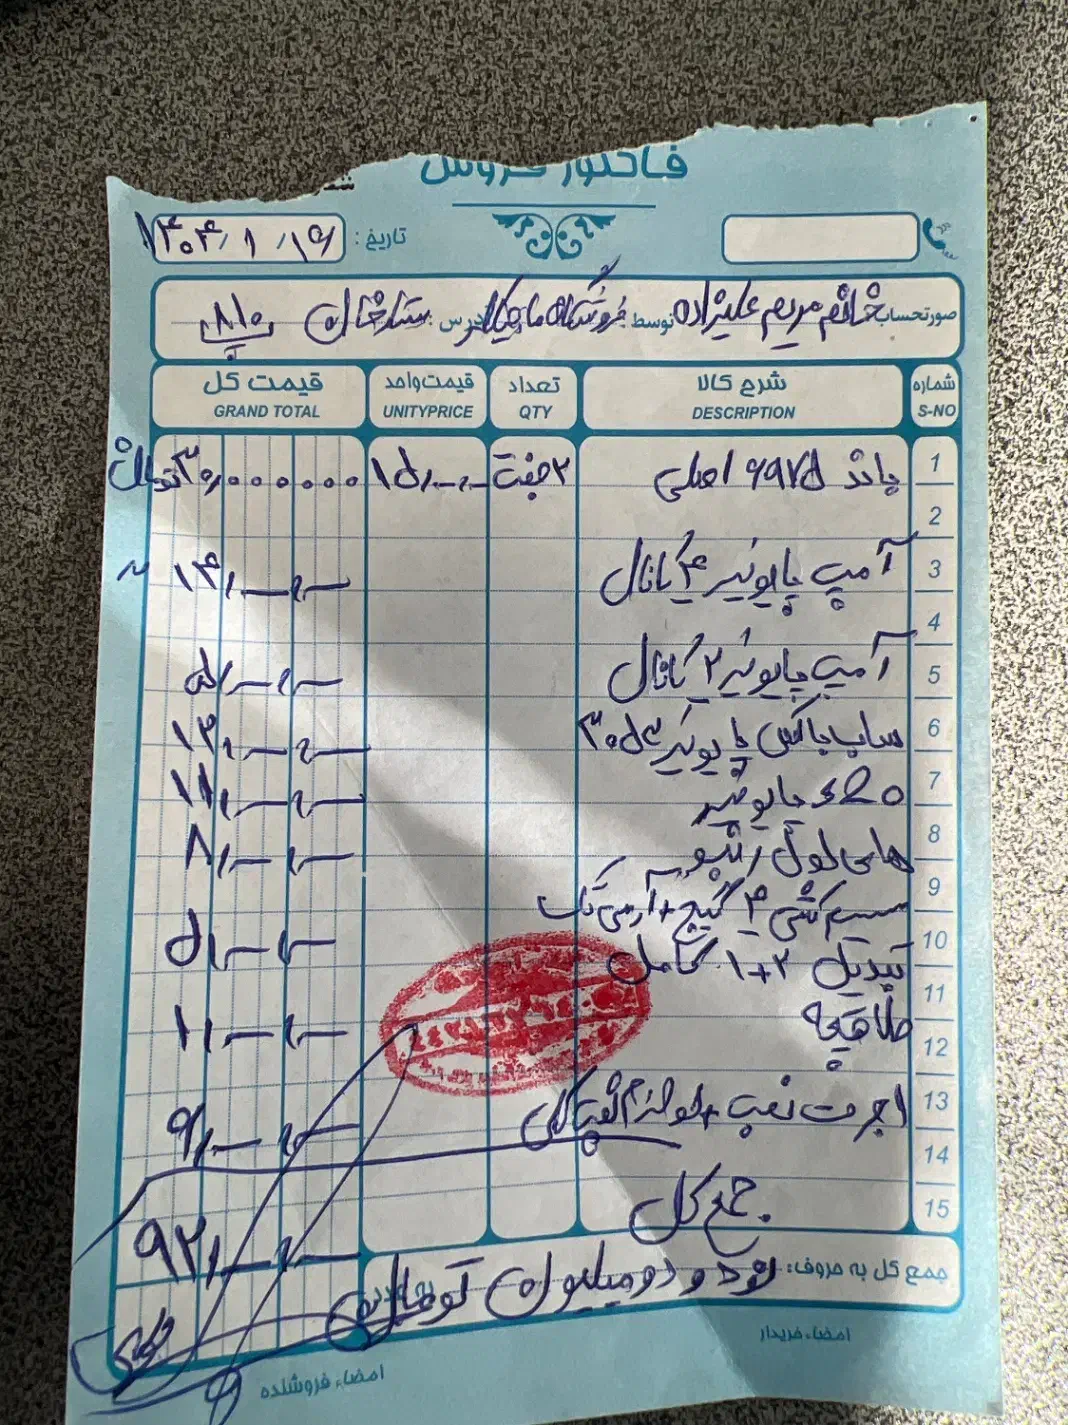 فاکتور فروش
تاریخ: ۱۴۰۴/۱/۱۹
صورتحساب خانم مریم علیزاده توسط: فروشگاه آدرس: ستارخان
شماره شرح کالا تعداد قیمت واحد قیمت کل
S-NO DESCRIPTION QTY UNITYPRICE GRAND TOTAL
1 باند ۶۹۷۵ اصلی ۲ جفت ۱۵,۰۰۰,۰۰۰ ۳۰,۰۰۰,۰۰۰ تومان
2
3 آمپ پایونیر ۴ کانال ۱۴,۰۰۰,۰۰۰
4
5 آمپ پایونیر ۲ کانال ۵,۰۰۰,۰۰۰
6 ساب باکس پایونیر ۳۰۵۴ ۱۲,۰۰۰,۰۰۰
7 پایونیر ۱۱,۰۰۰,۰۰۰
8 های لول رینبو ۸,۰۰۰,۰۰۰
9 سیم کشی ۴ گیج + آر سی تک
10 تبدیل ۲+۱ کامل ۵,۰۰۰,۰۰۰
11
12 طاقچه ۱,۰۰۰,۰۰۰
13 اجرت نصب + لوازم ۶,۰۰۰,۰۰۰
14
15 جمع کل ۹۲,۰۰۰,۰۰۰
جمع کل به حروف: نود و دو میلیون تومان
امضاء خریدار
امضاء فروشنده